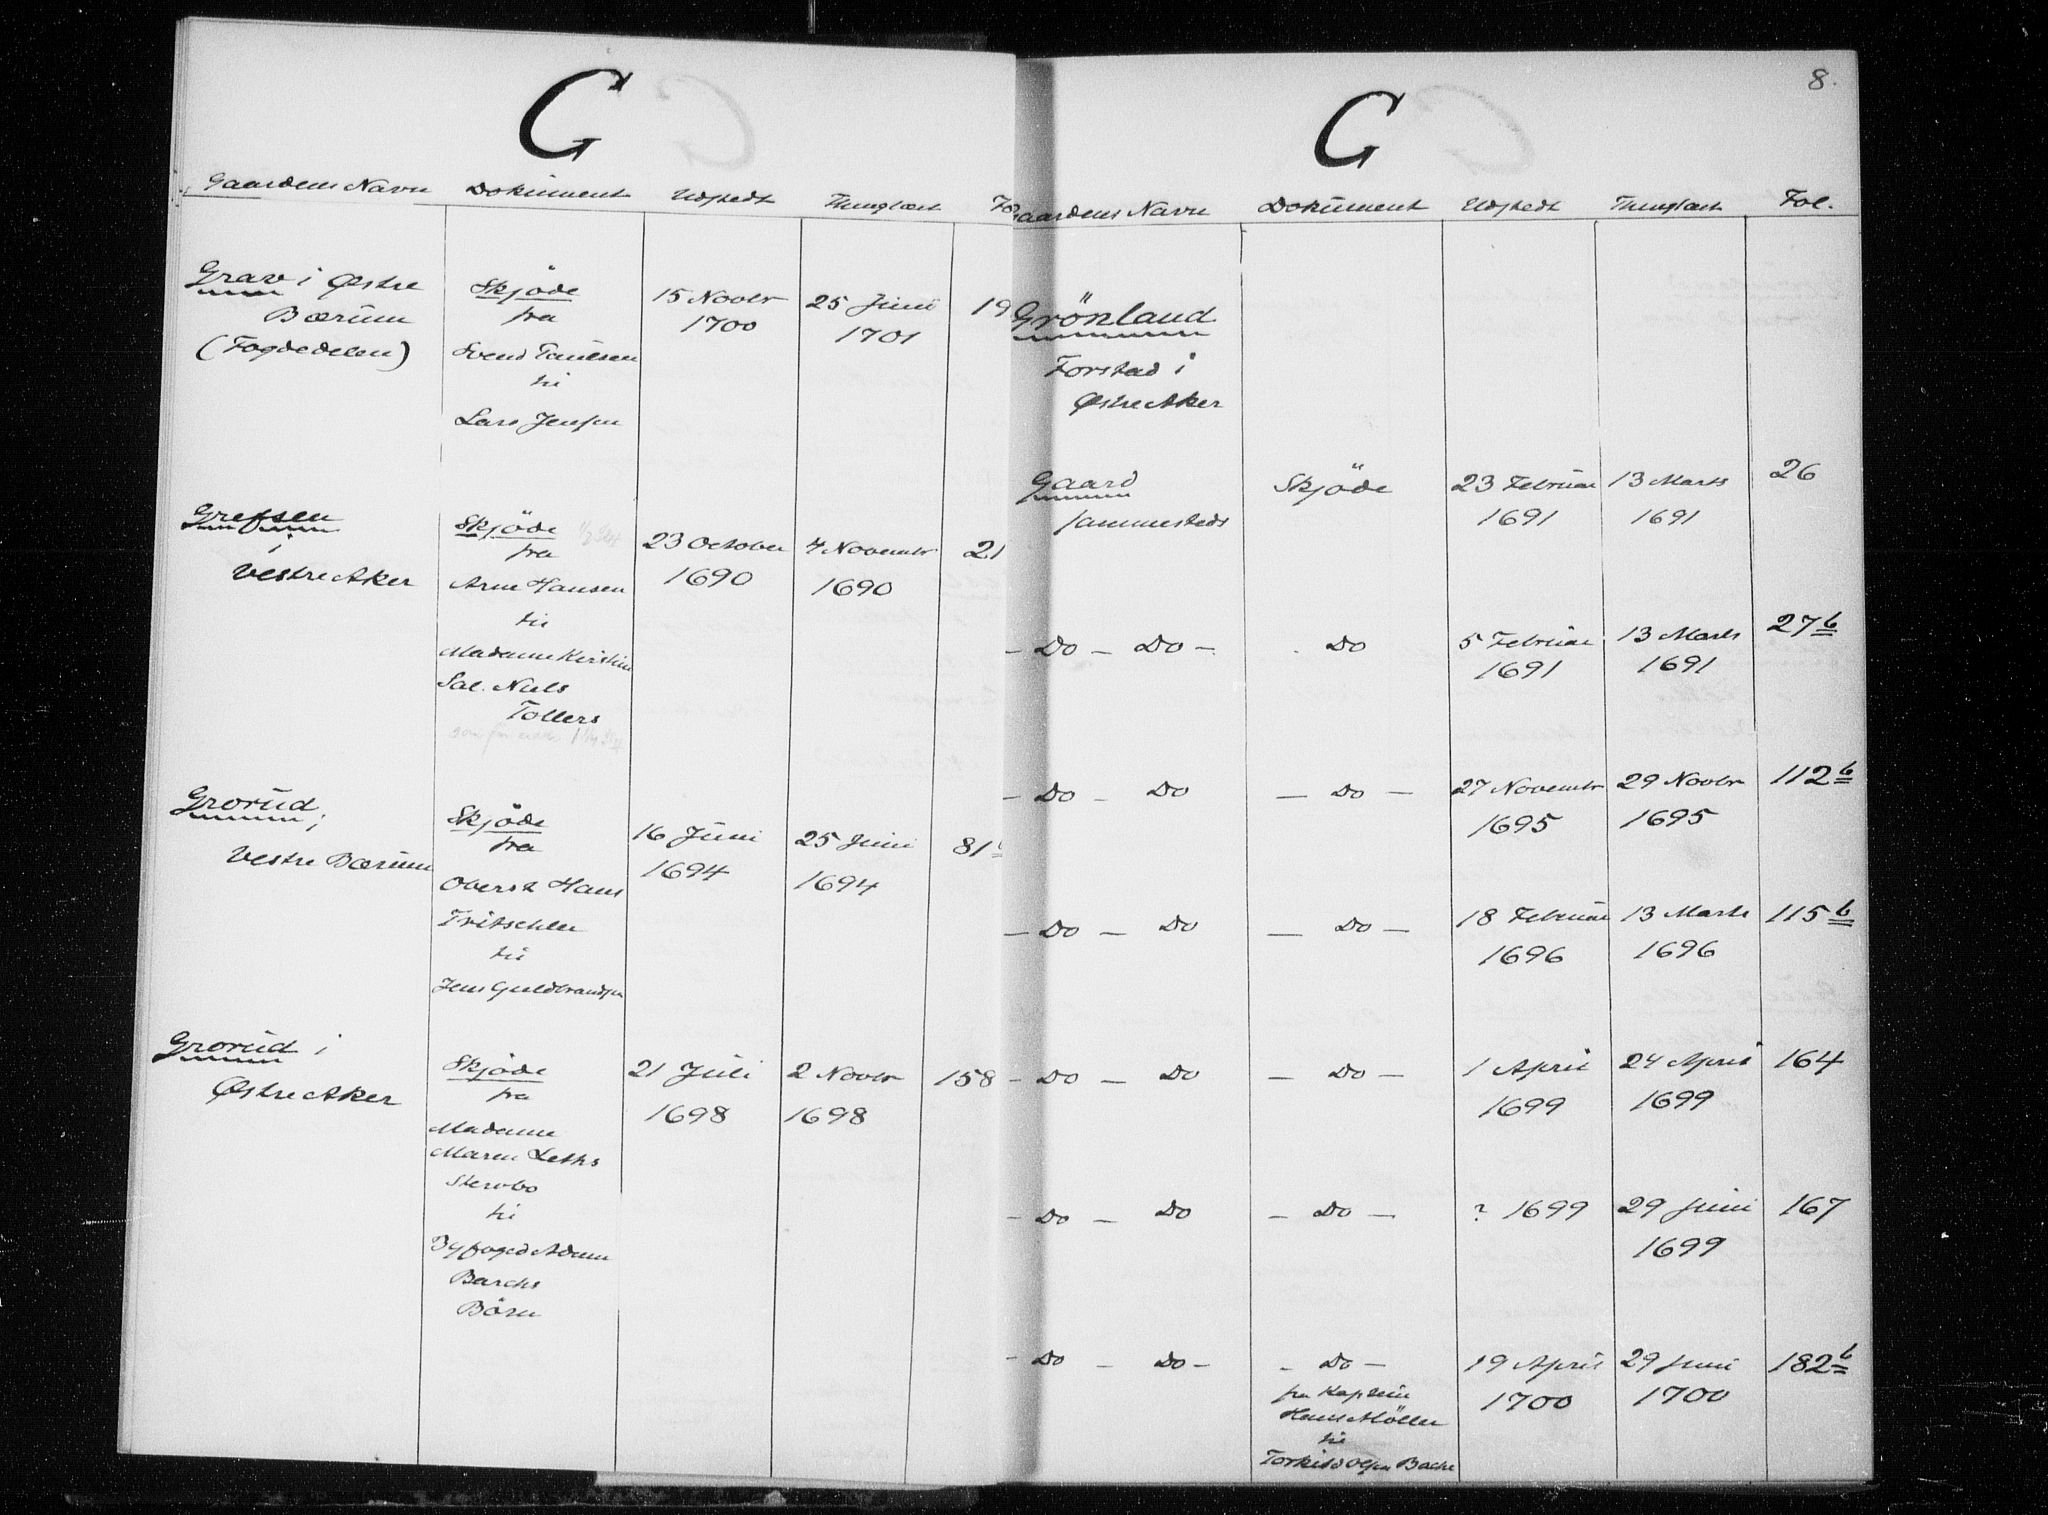 G
Gaardens Navn Dokument Udstedt Thinglæst Fo
Grav i Østre
Bærum
(Fogdedelen)
Skjöde
fra
Svend Paulsen
til
Lars Jensen
15 Novbr
1700
25 Juni
1701
19
Grefsen
i
Vestre Aker
Skjöde
fra
Arne Hansen
til
Madame Kirstine
Sal. Niels
Tollers
23 October
1690
4 Novembr
1690
21
Grorud i
Vestre Bærum
Skjöde
fra
Oberst Hans
Fritschler
til
Jens Guldbrandsen
16 Juni
1694
25 Juni
1694
81
Grorud i
Østre Aker
Skjöde
fra
Madame
Maren Leths
Stervbo
til
Byfoged Adam
Barchs
Börn
21 Juli
1698
2 Novbr
1698
158
8.
G
Gaardens Navn Dokument Udstedt Thinglæst Fol.
Grönland
Forstad i
Østre Aker
Gaard
sammesteds
Skjöde
23 Februar
1691
13 Marts
1691
26
- Do - Do - Do
5 Februar
1691
13 Marts
1691
27 b
- Do - Do - Do -
27 Novembr
1695
29 Novbr
1695
112 b
- Do - Do - Do -
18 Februar
1696
13 Marts
1696
115 b
- Do - Do - Do -
1 April
1699
24 April
1699
164
- Do - Do - Do -
? 1699
29 Juni
1699
167
- Do - Do - - Do -
fra Kaptein
Hans Möller
til
Torkild Olsen Bache
19 April
1700
29 Juni
1700
182 b